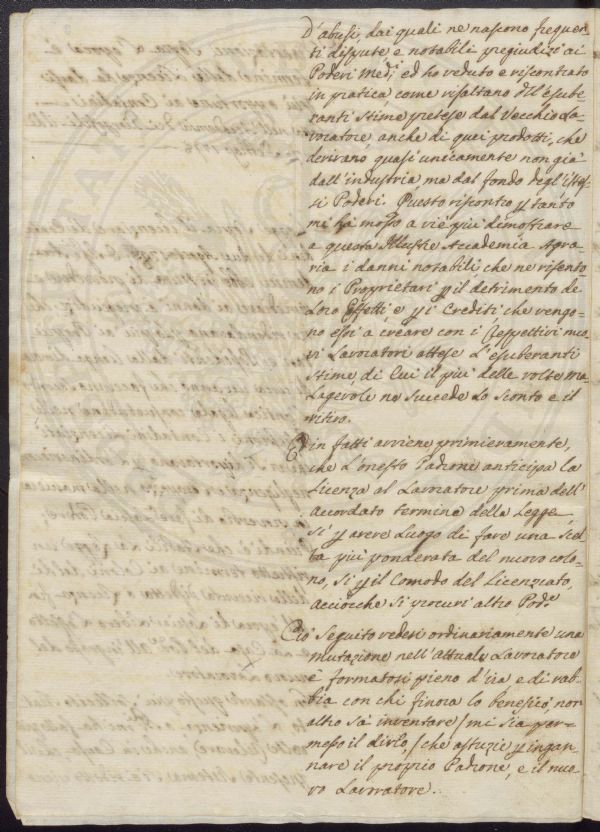 D'abusi, dai quali ne nascono frequen
ti dispute e notabili pregiudizi ai
Poderi Med.i ed ho veduto e riscontrato
in pratica come risaltano dall'esube-
ranti stime pretese dal Vecchio La-
voratore, anche di quei prodotti, che
derivano quasi unicamente non già
dall'industria, ma dal fondo degl'istes-
si Poderi. Questo riscontro p tanto
mi ha mosso a vie più dimostrare
a questa Illustre Accademia Agra-
ria i danni notabili che ne risento
no i Proprietari p il detrimento de
Loro Effetti e p i Crediti che vengo-
no essi a creare con i respettivi nuo
vi Lavoratori attese l'esuberanti
stime di Cui il più delle volte, ma
lagevole ne succede lo sconto e il
ritiro.
E in fatti avviene primieramente,
che l'onesto Padrone anticipa la
Licenza al Lavoratore prima dell'
accordato termine della Legge,
si p avere Luogo di fare una Scel
ta più ponderata del nuovo colo-
no, si p il Comodo del Licenziato,
acciocche si procuri altro Pod.e
Ciò Seguito vedesi ordinariamente una
mutazione nell'attuale Lavoratore
e formatosi pieno d'ira e di rab-
bia con chi finora lo beneficò non
altro sà inventare / mi sia per-
messo il dirlo / che astuzie p ingan-
nare il proprio Padrone, e il nuo
vo Lavoratore.